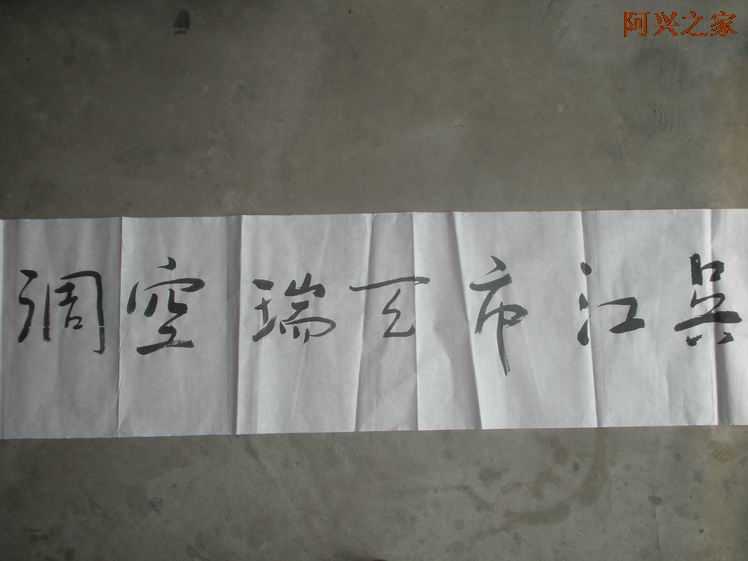 阿兴之家
吴江市天瑞空调